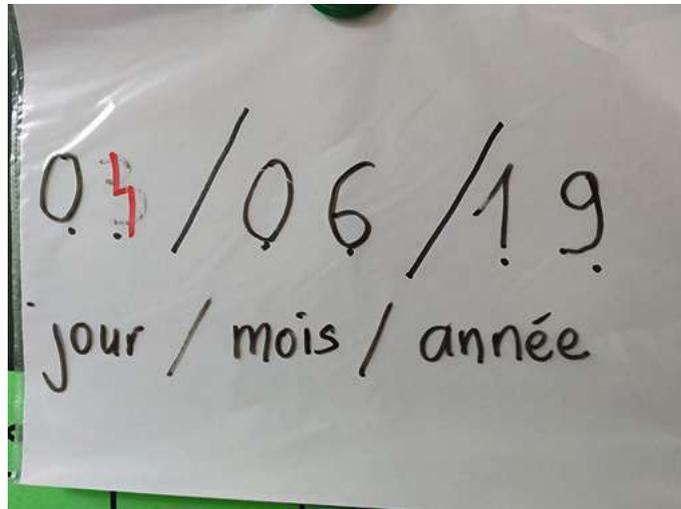 04/06/19
jour / mois / année